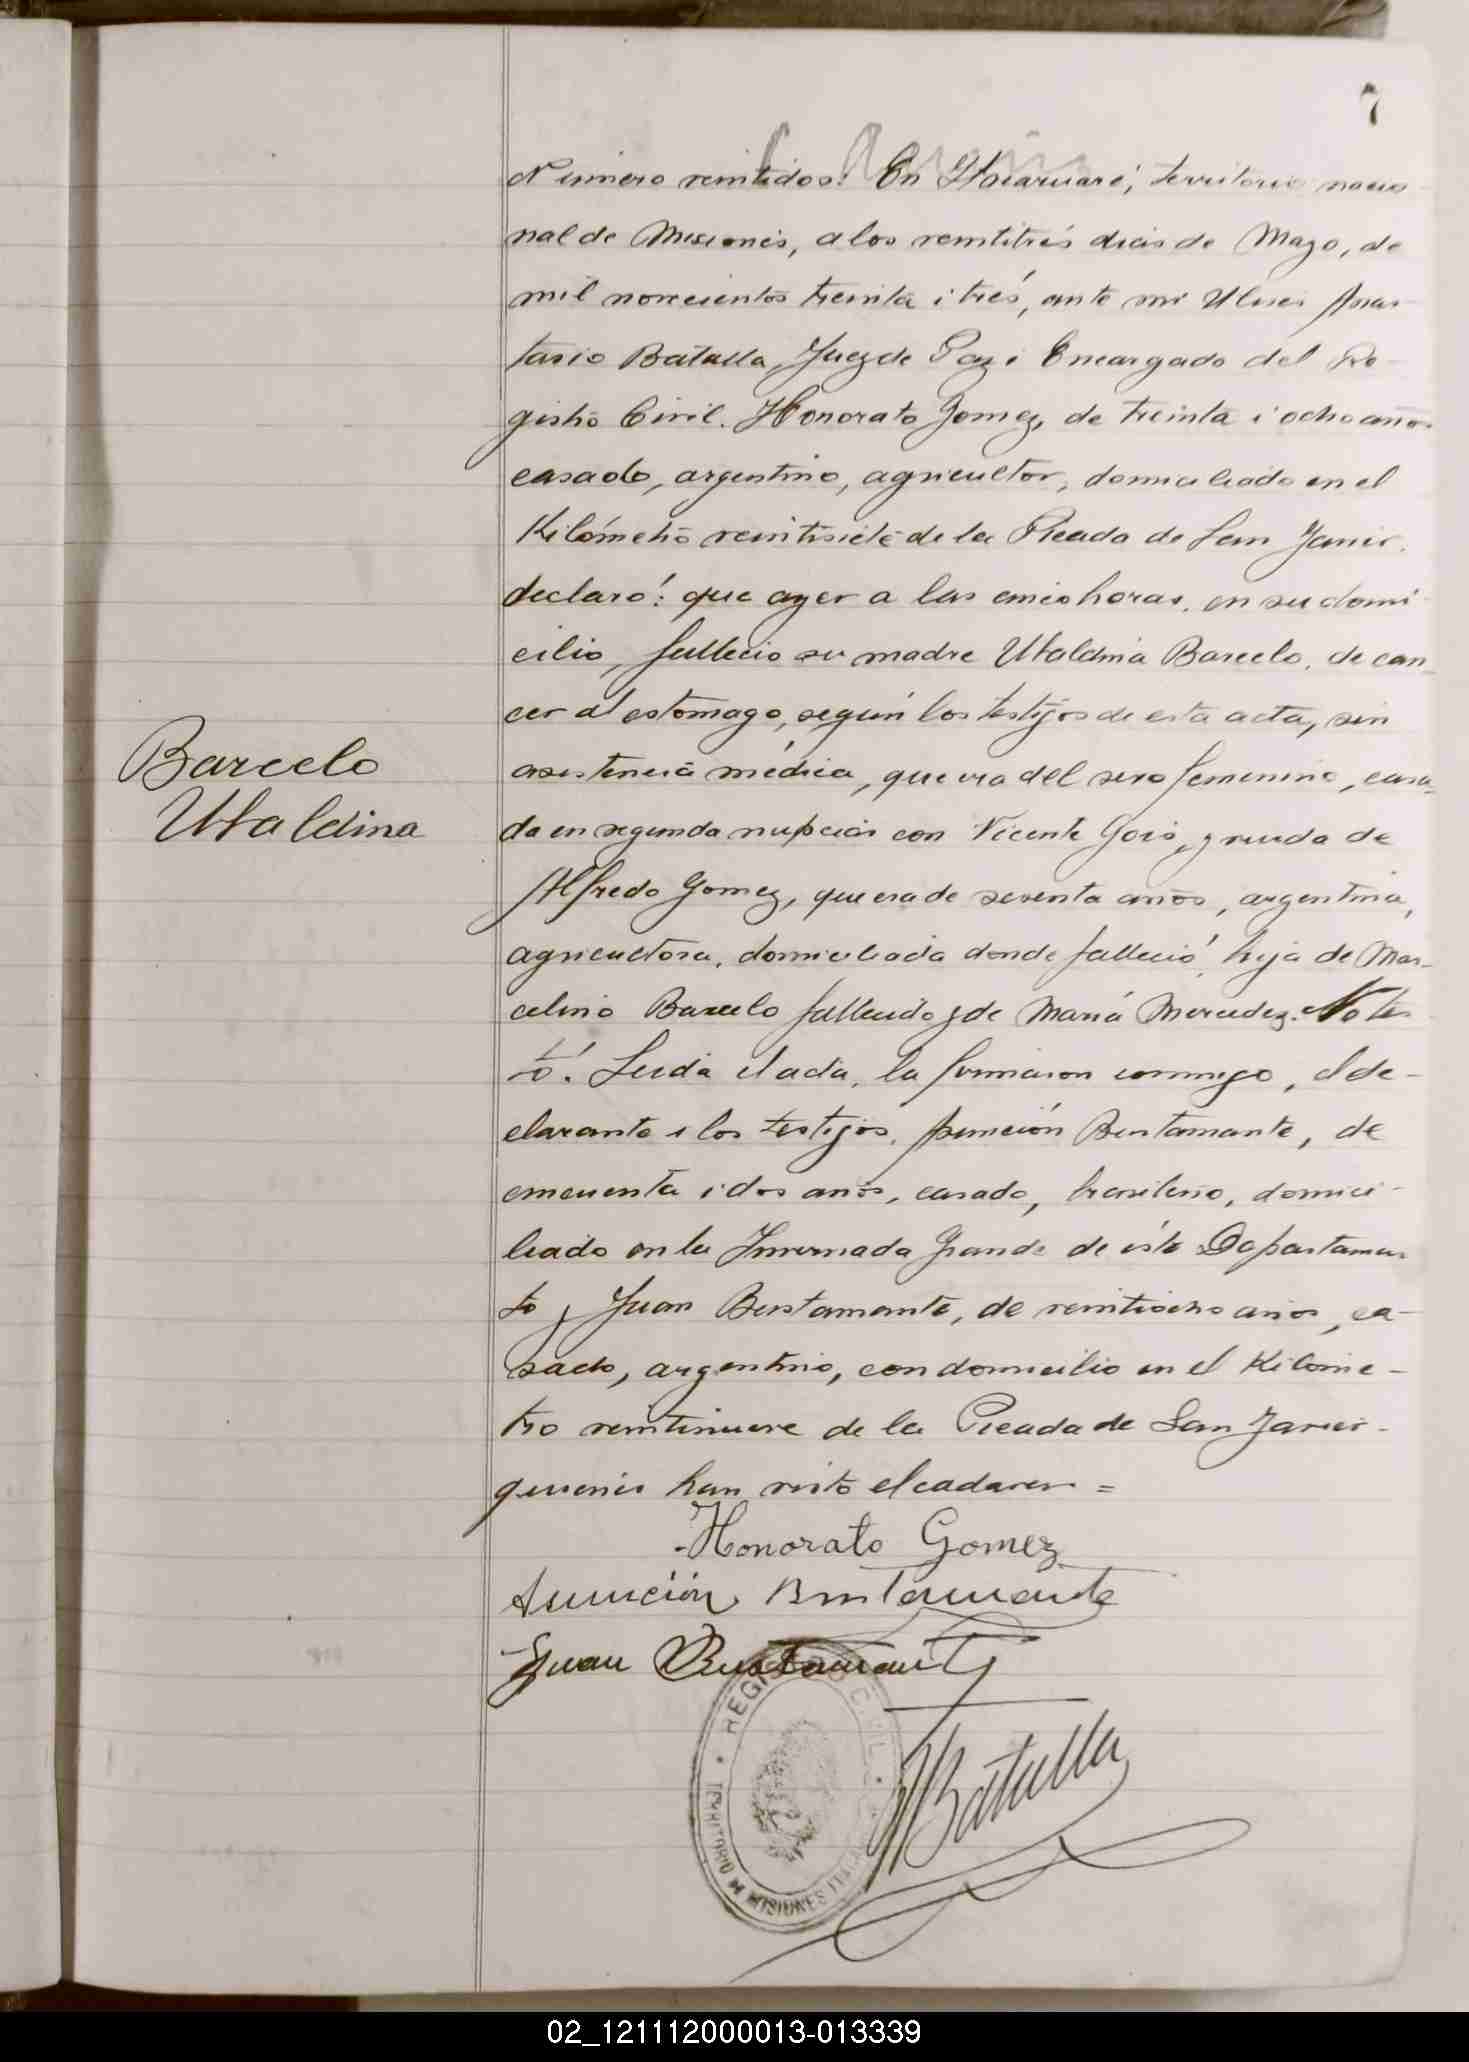 7
Número veintidos: En Itacaruaré, territorio nacio-
nal de Misiones, a los veintitrés dias de Mayo, de
mil novecientos treinta i trés, ante mi Ulises Anas-
tasio Batalla, Juez de Paz i Encargado del Re-
gistro Civil. Honorato Gomez, de treinta i ocho años
casado, argentino, agricultor, domiciliado en el
Kilómetro veintisiete de la Picada de San Javier.
declaró: que ayer a las cinco horas, en su domi-
cilio, fallecio su madre Ubaldina Barcelo, de can-
cer al estomago, según los testigos de esta acta, sin
asistencia médica, que era del sexo femenino, casa-
da en segunda nupcias con Vicente Gois, y viuda de
Alfredo Gomez, que era de años, argentina,
agricultora, domiciliada donde falleció, hija de Mar-
celino Barcelo fallecido y de María Mercedez. No tes-
tó. Leida el acta, la firmaron conmigo, el de-
clarante i los testigos, Asunción Bustamante, de
cincuenta i dos años, casado, brasileño, domici-
liado en la Invernada Grande de éste Departamen-
to y Juan Bustamante, de veintiocho años, ca-
sado, argentino, con domicilio en el Kilome-
tro veintinueve de la Picada de San Javier-
quienes han visto el cadaver =
Barcelo
Ubaldina
Honorato Gomez
Asunción Bustamante
Juan Bustamante
Batalla
REGISTRO CIVIL
TERRITORIO DE MISIONES
02_121112000013-013339